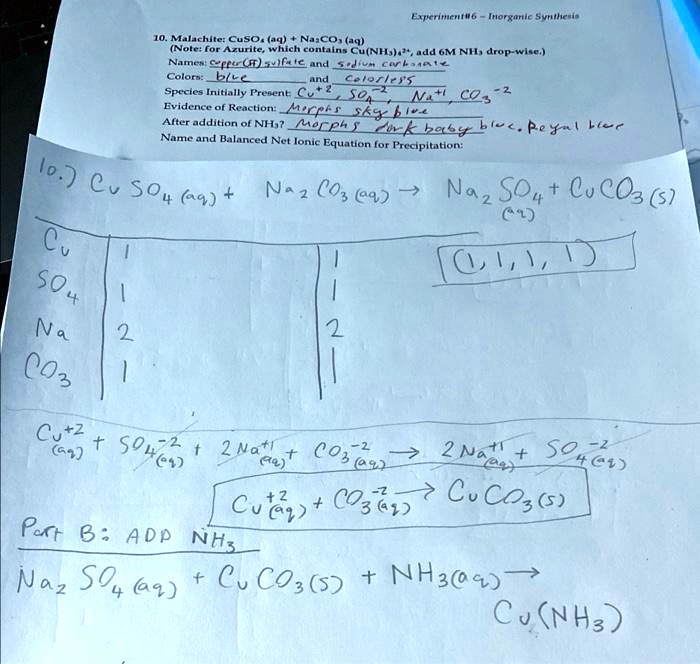 Experiment#6 – Inorganic Synthesis
10. Malachite: CuSO₄ (aq) + Na₂CO₃ (aq)
(Note: for Azurite, which contains Cu(NH₃)₄²⁺, add 6M NH₃ drop-wise.)
Names: copper(II) sulfate and sodium carbonate
Colors: blue and colorless
Species Initially Present: Cu⁺², SO₄⁻², Na⁺¹, CO₃⁻²
Evidence of Reaction: Morphs sky blue
After addition of NH₃? Morphs dark baby blue. Royal blue
Name and Balanced Net Ionic Equation for Precipitation:
10.) CuSO₄ (aq) + Na₂CO₃ (aq) → Na₂SO₄ (aq) + CuCO₃ (s)
Cu 1 1 (1, 1, 1, 1)
SO₄ 1 1
Na 2 2
CO₃ 1 1
Cu⁺² (aq) + SO₄⁻² (aq) + 2Na⁺¹ (aq) + CO₃⁻² (aq) → 2Na⁺¹ (aq) + SO₄⁻² (aq)
Cu⁺² (aq) + CO₃⁻² (aq) → CuCO₃ (s)
Part B: ADD NH₃
Na₂SO₄ (aq) + CuCO₃ (s) + NH₃ (aq) →
Cu(NH₃)